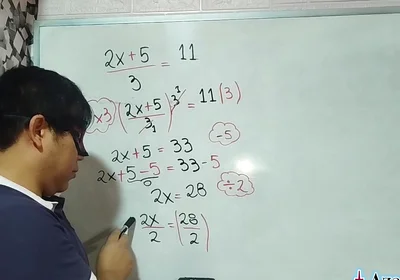 2x+5/3 = 11
x3 (2x+5/3)3 = 11(3)
-5
2x+5 = 33
2x+5-5 = 33-5
0
2x = 28
÷2
2x/2 = (28/2)